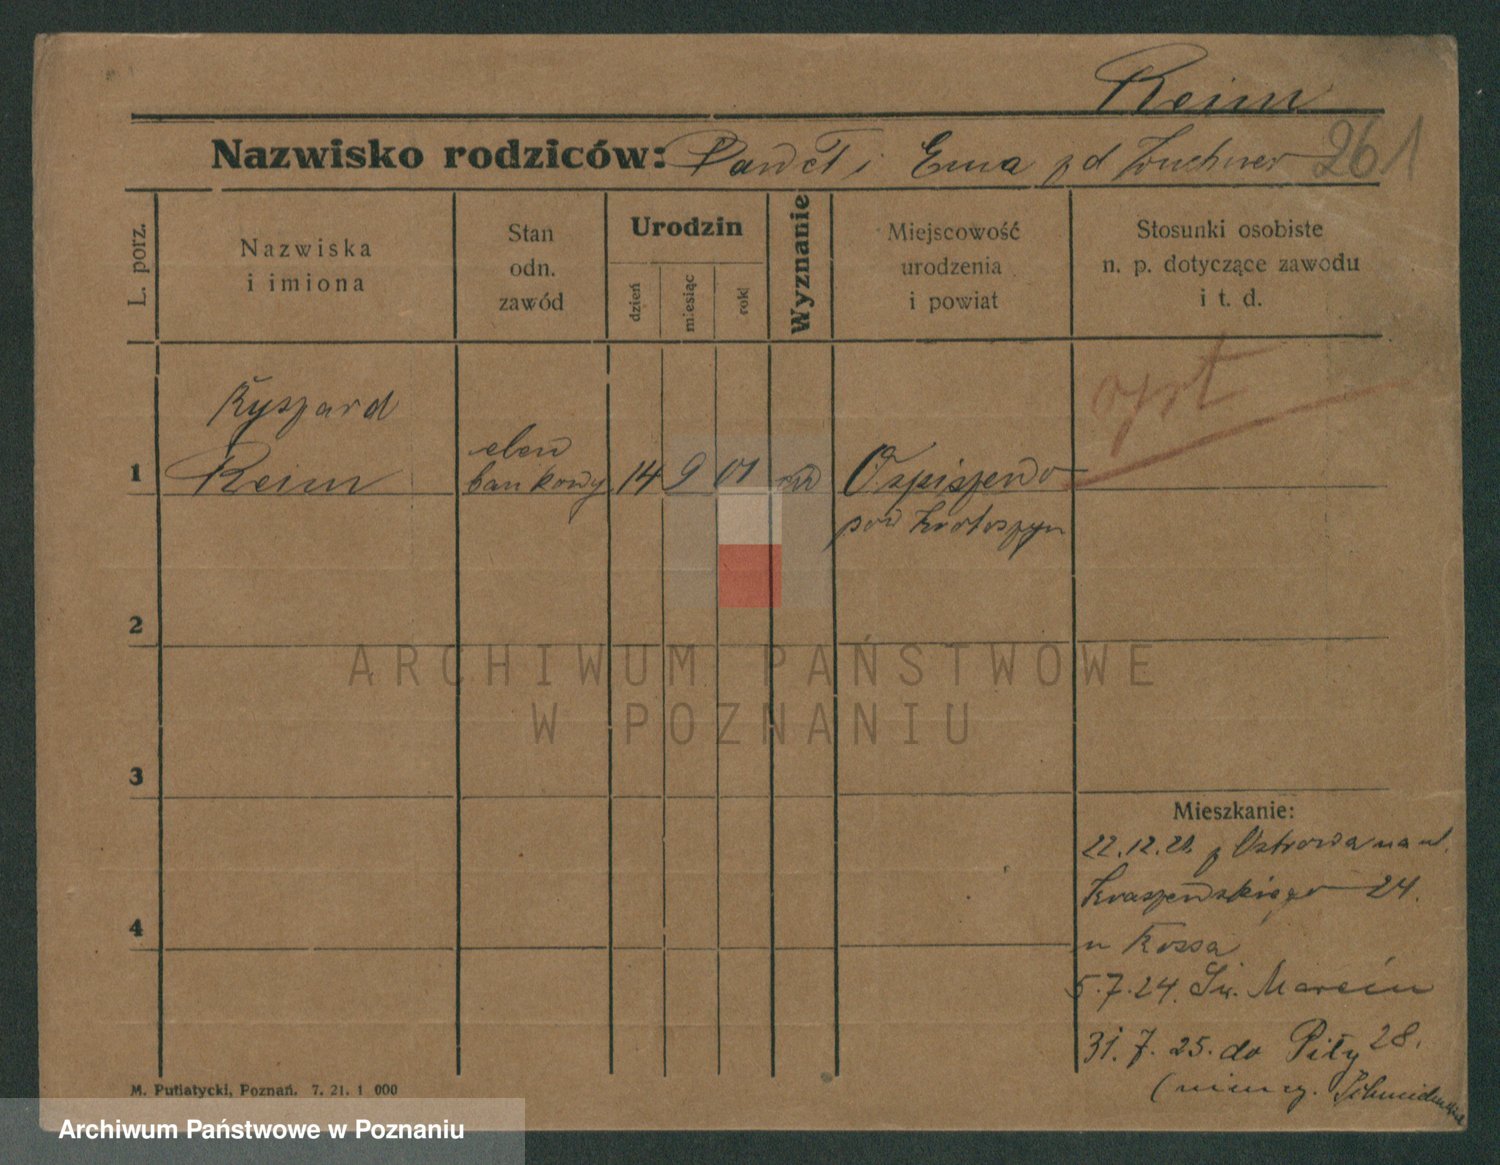 Reim
Nazwisko rodziców: Paweł i Ema z d Zuchner 261
L. porz.
Nazwiska
i imiona
Stan
odn.
zawód
Urodzin
dzień
miesiąc
rok
Wyznanie
Miejscowość
urodzenia
i powiat
Stosunki osobiste
n. p. dotyczące zawodu
i t. d.
opt
Ryszard
1 Reim
elew
bankowy
14 9 01
pow Krotoszyn
2
3
4
ARCHIWUM PAŃSTWOWE
W POZNANIU
Mieszkanie:
22.12.21. z Ostrowa na ul.
Kraszewskiego 24.
u Kossa
5.7.24. Św. Marcin
28.
31.7.25. do Piły
(niemcy.
M. Putiatycki, Poznań. 7. 21. 1 000
Archiwum Państwowe w Poznaniu